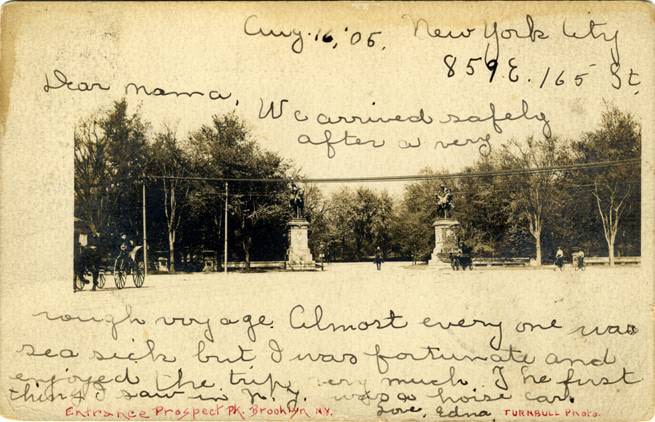 Aug. 16, '05. New York City
859 E. 165 St.
Dear mama, We arrived safely
after a very
rough voyage. Almost every one was
sea sick but I was fortunate and
enjoyed the trip very much. The first
thing I saw in N.Y. was a horse car.
Love, Edna.
Entrance Prospect Pk. Brooklyn NY.
TURNBULL PHOTO.